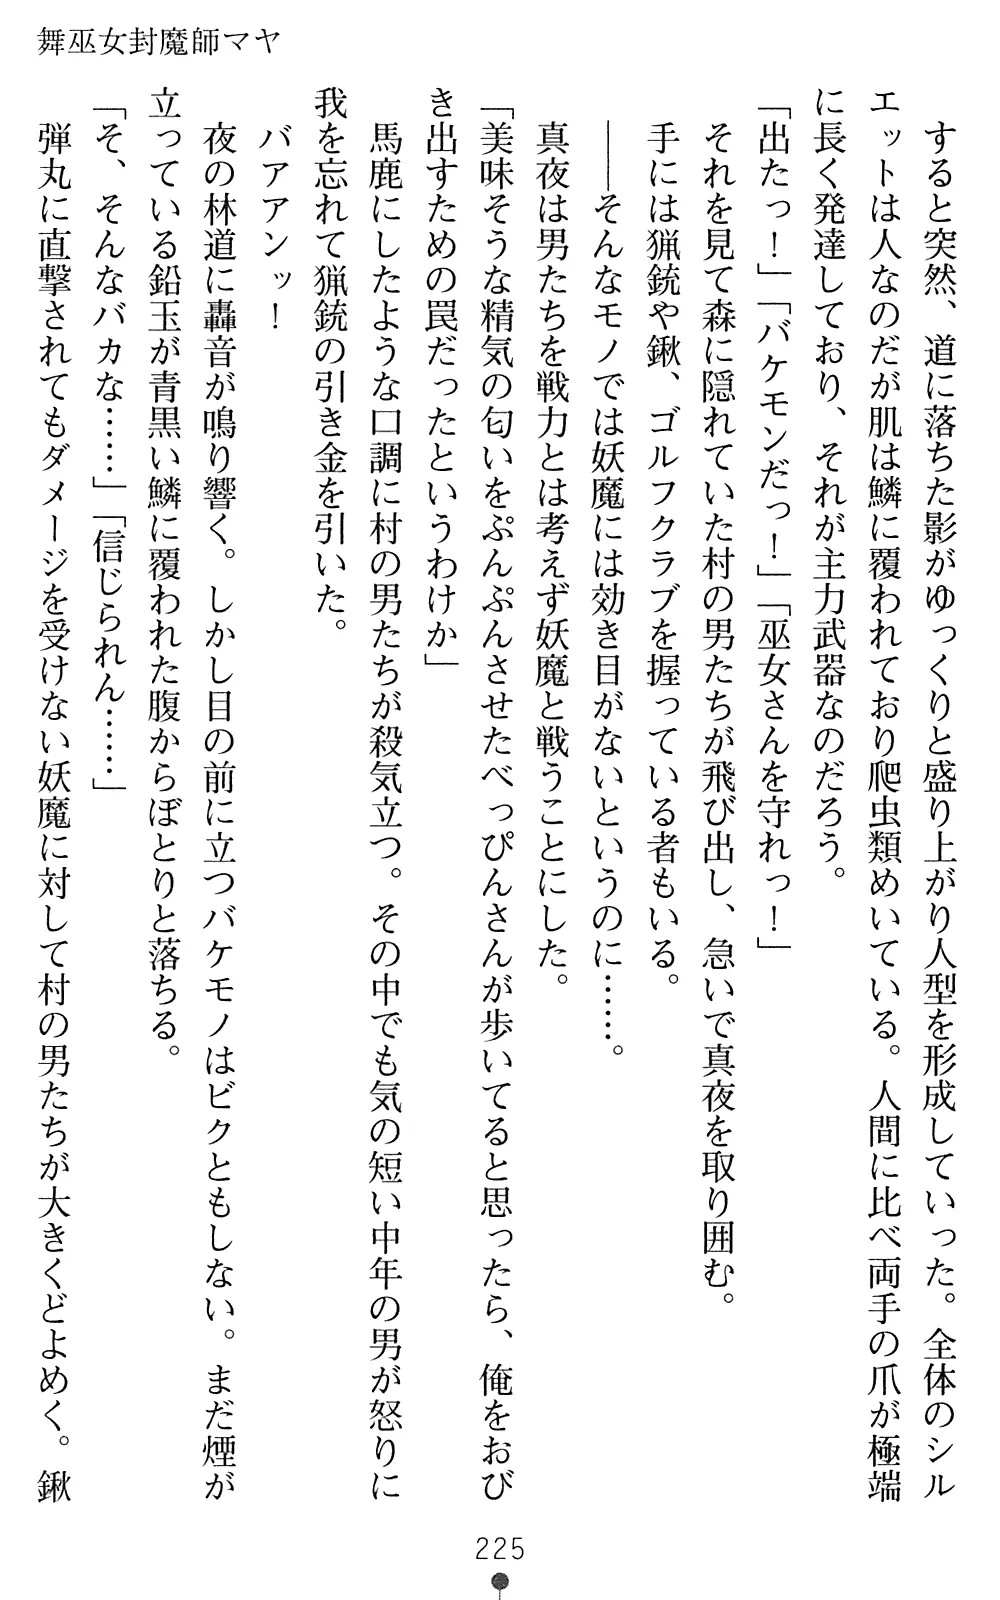 舞巫女封魔師マヤ
　すると突然、道に落ちた影がゆっくりと盛り上がり人型を形成していった。全体のシル
エットは人なのだが肌は鱗に覆われており爬虫類めいている。人間に比べ両手の爪が極端
に長く発達しており、それが主力武器なのだろう。
「出たっ！」「バケモンだっ！」「巫女さんを守れっ！」
　それを見て森に隠れていた村の男たちが飛び出し、急いで真夜を取り囲む。
　手には猟銃や鍬、ゴルフクラブを握っている者もいる。
　――そんなモノでは妖魔には効き目がないというのに……。
　真夜は男たちを戦力とは考えず妖魔と戦うことにした。
「美味そうな精気の匂いをぷんぷんさせたべっぴんさんが歩いてると思ったら、俺をおび
き出すための罠だったというわけか」
　馬鹿にしたような口調に村の男たちが殺気立つ。その中でも気の短い中年の男が怒りに
我を忘れて猟銃の引き金を引いた。
　バアアンッ！
　夜の林道に轟音が鳴り響く。しかし目の前に立つバケモノはビクともしない。まだ煙が
立っている鉛玉が青黒い鱗に覆われた腹からぼとりと落ちる。
「そ、そんなバカな……」「信じられん……」
　弾丸に直撃されてもダメージを受けない妖魔に対して村の男たちが大きくどよめく。鍬
225